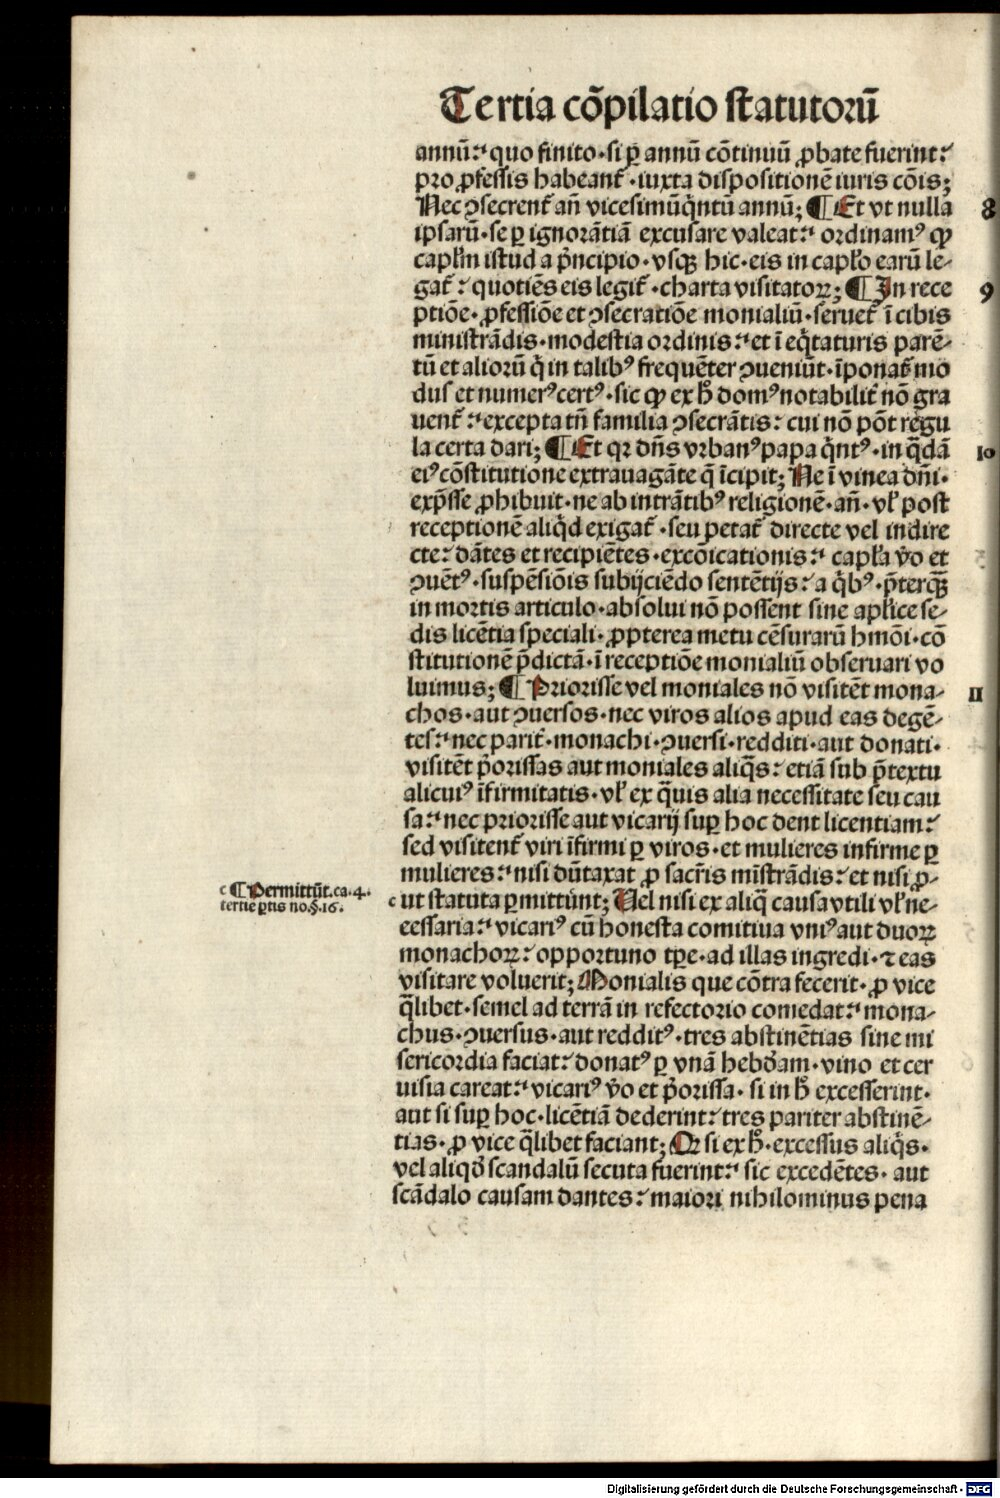 Tertia cõpilatio statutorũ
annũ:ʼ quo finito·si ꝑ annũ cõtinuũ ꝓbate fuerint:ʼ
pro ꝓfessis habeant᷑·iuxta dispositionẽ iuris cõis;
Nec ꝯsecrent᷑ añ vicesimũq̃ntũ annũ; ¶ Et vt nulla 8
ipsarũ·se ꝑ ignorãtiã excusare valeat:ʼ ordinamꝰ ꝙ
capl̃m istud a p̃ncipio·vsqꝫ hic·eis in capl̃o earũ le-
gat᷑:ʼ quotiẽs eis legit᷑·charta visitatoꝝ; ¶ In rece 9
ptiõe·ꝓfessiõe et ꝯsecratiõe monialiũ·seruet᷑ ĩ cibis
ministrãdis·modestia ordinis:ʼ et ĩ eq̃taturis parẽ-
tũ et aliorũ q̃ in talibꝰ frequẽter ꝯueniũt·ĩponat᷑ mo
dus et numerꝰ certꝰ·sic ꝙ ex h̃ domꝰ notabilit᷑ nõ gra
uent᷑:ʼ excepta tñ familia ꝯsecrãtis:ʼ cui nõ põt regu
la certa dari; ¶ Et qꝛ dñs vrbanꝰ papa q̃ntꝰ·in q̃dã 10
eiꝰ cõstitutione extrauagãte q̃ ĩcipit; Ne ĩ vinea dñi·
exp̃sse ꝓhibuit·ne ab intrãtibꝰ religionẽ·añ·vl̃ post
receptionẽ aliq̃d exigat᷑·seu petat᷑ directe vel indire
cte:ʼ dãtes et recipiẽtes·excõicationis:ʼ capl̃a ṽo et
ꝯuẽtꝰ·suspẽsiõis subijciẽdo sentẽtijs:ʼ a q̃bꝰ·p̃terqꝫ̃
in mortis articulo·absolui nõ possent sine apl̃ice se-
dis licẽtia speciali·ꝓpterea metu cẽsurarũ hmõi·cõ
stitutionẽ p̃dictã·ĩ receptiõe monialiũ obseruari vo
lumus; ¶ Priorisse vel moniales nõ visitẽt mona- 11
chos·aut ꝯuersos·nec viros alios apud eas degẽ-
tes:ʼ nec parit᷑·monachi·ꝯuersi·redditi·aut donati·
visitẽt p̃orissas aut moniales aliq̃s:ʼ etiã sub p̃textu
alicuiꝰ ĩfirmitatis·vl̃ ex q̃uis alia necessitate seu cau
sa:ʼ nec priorisse aut vicarij suꝑ hoc dent licentiam:ʼ
sed visitent᷑ viri ĩfirmi ꝑ viros·et mulieres infirme ꝑ
mulieres:ʼ nisi dũtaxat ꝓ sacr̃is mĩstrãdis:ʼ et nisi ꝓ-
c ¶ Permittũt.ca.4.
tertie ꝑtis no.§.16.
c ut statuta ꝑmittũnt; Uel nisi ex aliq̃ causa vtili vl̃ ne-
cessaria:ʼ vicariꝰ cũ honesta comitiua vniꝰ aut duoꝝ
monachoꝝ:ʼ opportuno tꝑe·ad illas ingredi·⁊ eas
visitare voluerit; Monialis que cõtra fecerit·ꝓ vice
q̃libet·semel ad terrã in refectorio comedat:ʼ mona-
chus·ꝯuersus·aut redditꝰ·tres abstinẽtias sine mi
sericordia faciat:ʼ donatꝰ ꝑ vnã hebd̃am·vino et cer
uisia careat:ʼ vicariꝰ ṽo et p̃orissa·si in h̃ excesserint·
aut si suꝑ hoc·licẽtiã dederint:ʼ tres pariter abstinẽ-
tias·ꝓ vice q̃libet faciant; Qꝛ si ex h̃·excessus aliq̃s·
vel aliqd̃ scandalũ secuta fuerint:ʼ sic excedẽtes·aut
scãdalo causam dantes:ʼ maiori nihilominus pena
Digitalisierung gefördert durch die Deutsche Forschungsgemeinschaft - DFG